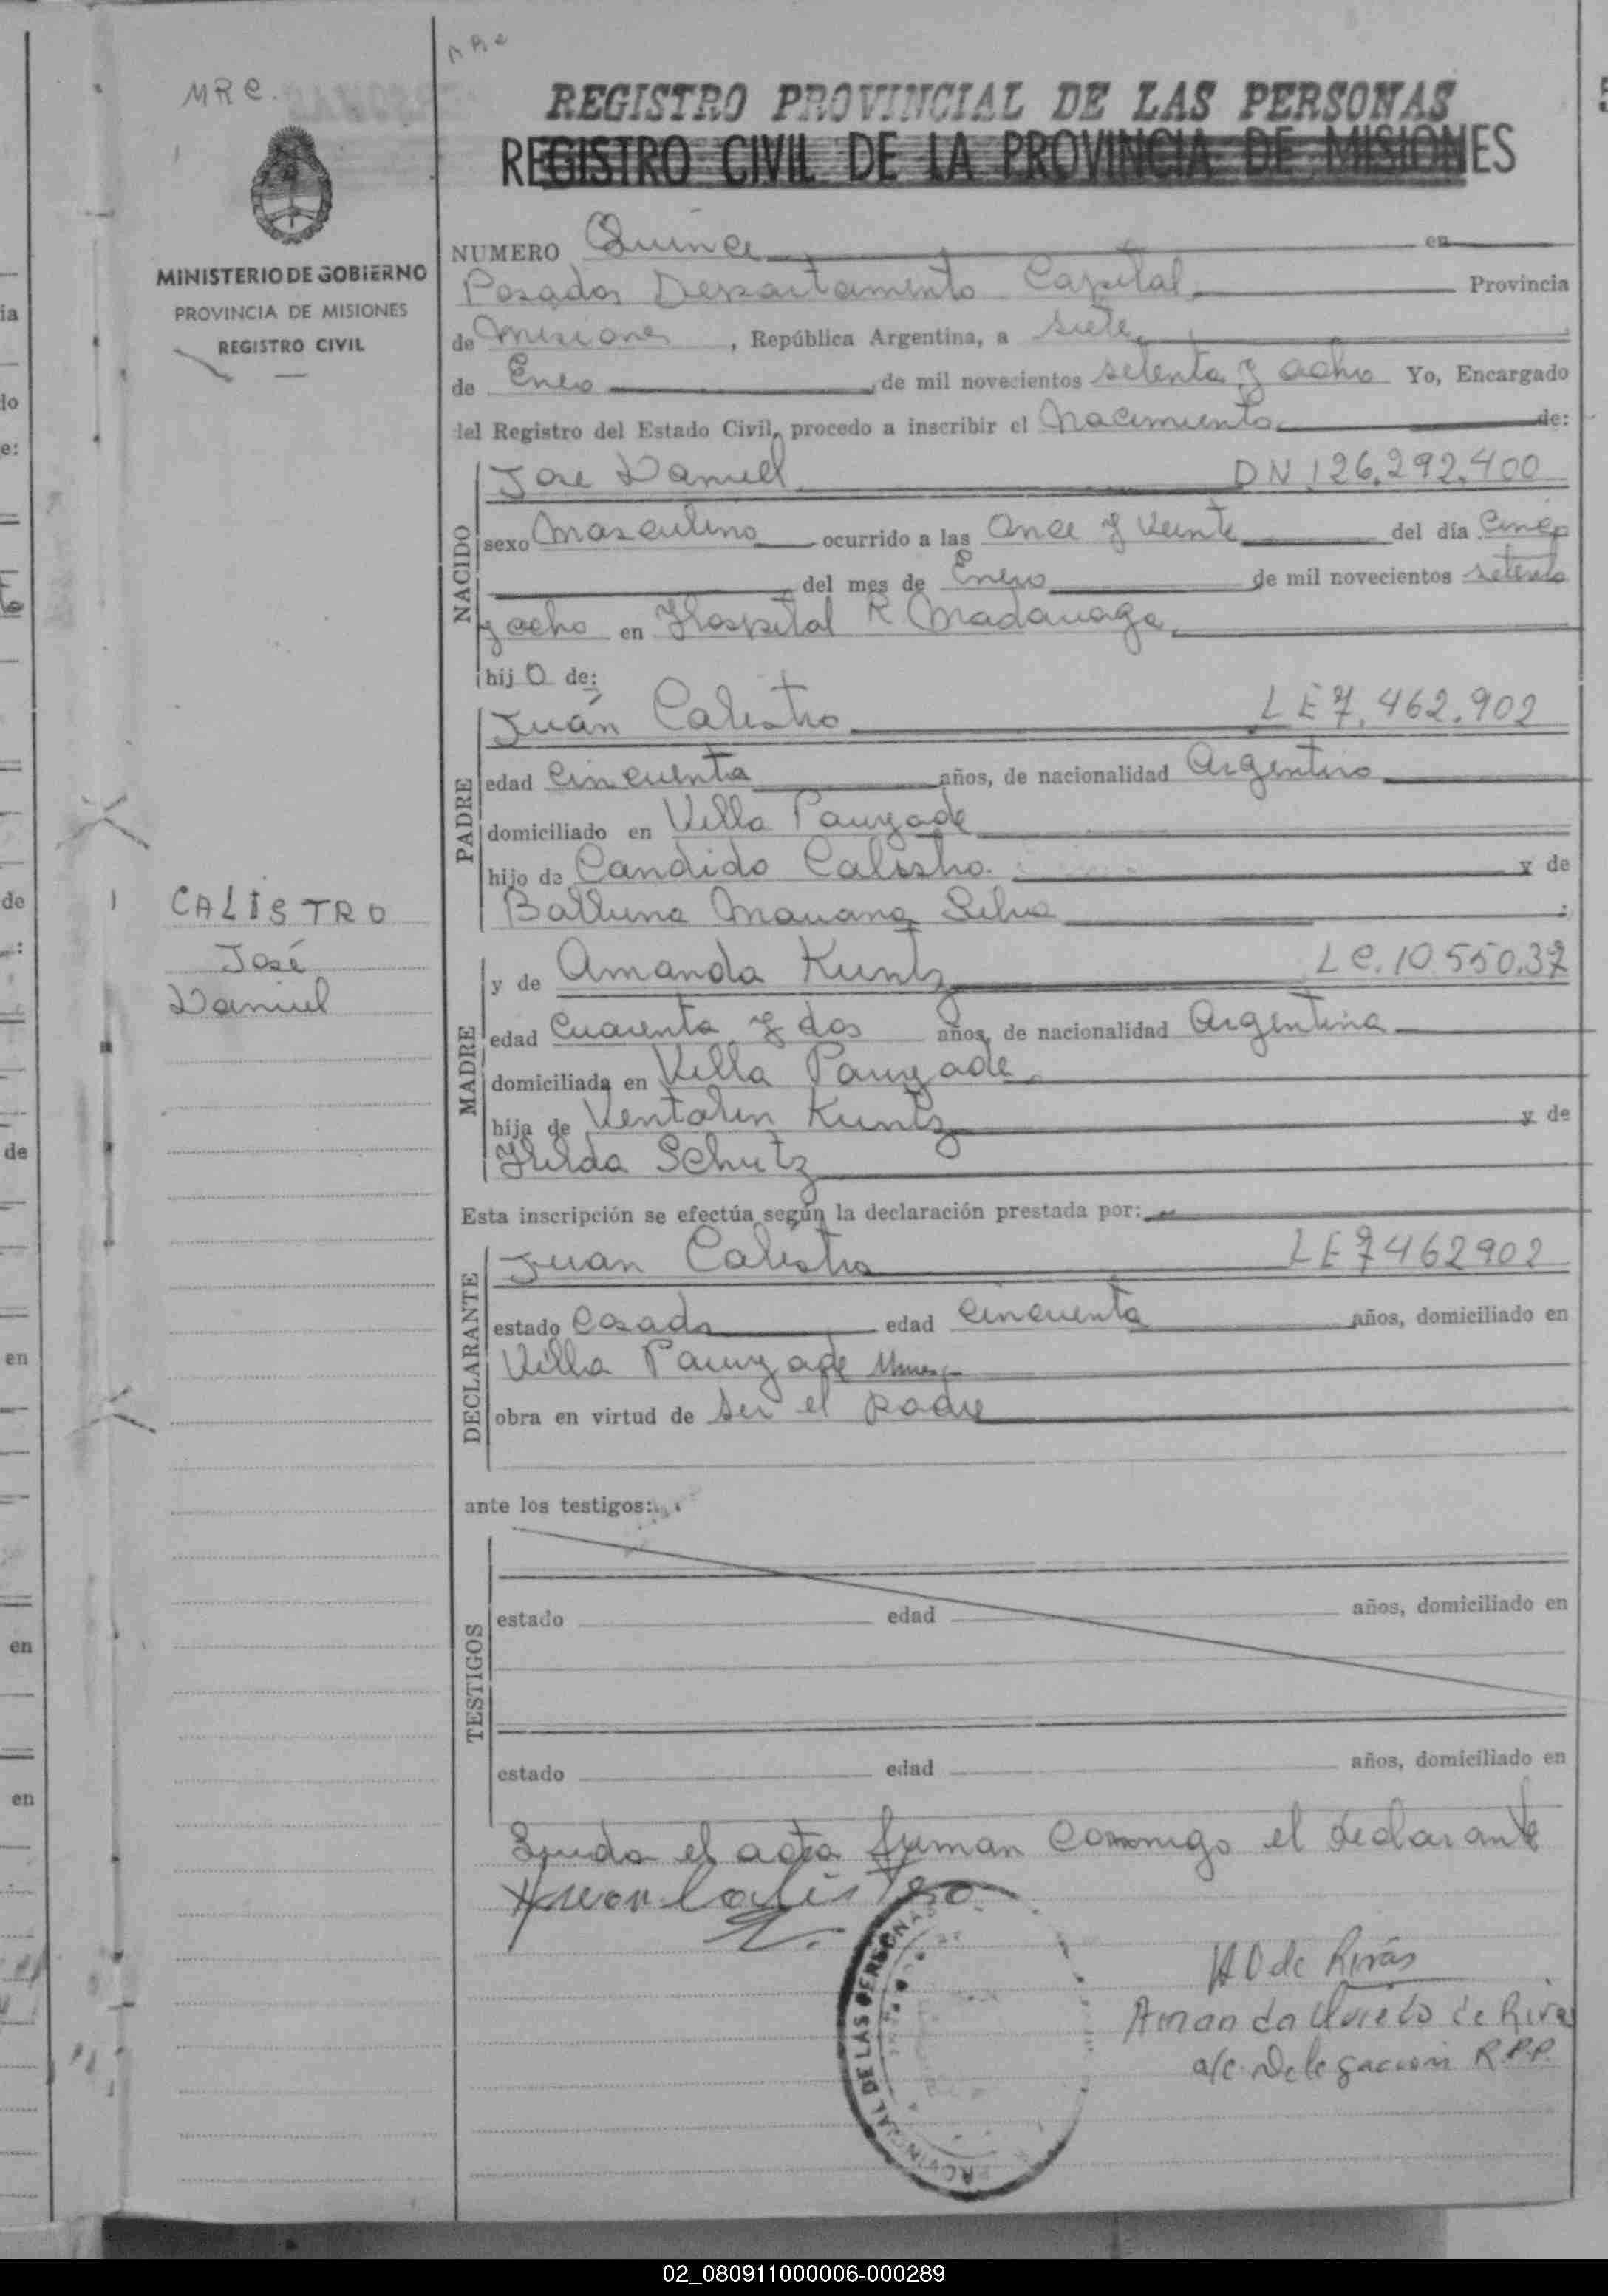 MRC.
REGISTRO PROVINCIAL DE LAS PERSONAS
REGISTRO CIVIL DE LA PROVINCIA DE MISIONES
MINISTERIO DE GOBIERNO
PROVINCIA DE MISIONES
REGISTRO CIVIL
NUMERO Quince en
Posadas Departamento Capital Provincia
de Misiones, República Argentina, a siete
de Enero de mil novecientos setenta y ocho Yo, Encargado
del Registro del Estado Civil, procedo a inscribir el Nacimiento de:
NACIDO
Jose Daniel DNI 26.292.400
sexo Masculino ocurrido a las Once y Veinte del día Cinco
del mes de Enero de mil novecientos setenta
y ocho en Hospital R Madariaga
hijo de:
PADRE
Juán Calistro LE 7.462.902
edad Cincuenta años, de nacionalidad Argentino
domiciliado en Villa
hijo de Candido Calistro y de
Silva;
CALISTRO
José
Daniel
MADRE
y de Amanda Kuntz LC. 10.550.37
edad Cuarenta y dos años, de nacionalidad Argentina
domiciliada en Villa
hija de Kuntz y de
Hilda Schutz
Esta inscripción se efectúa según la declaración prestada por:
DECLARANTE
Juan Calistro LE 7462902
estado Casado edad Cincuenta años, domiciliado en
Villa
obra en virtud de ser el padre
ante los testigos:
TESTIGOS
estado edad años, domiciliado en
estado edad años, domiciliado en
el acta firman conmigo el declarante
Juan Calistro
PROVINCIAL DE LAS PERSONAS
de Rivas
Amanda de Rivas
a/c Delegacion R.P.P.
ia
lo
e:
de
:
de
en
en
en
02_080911000006-000289